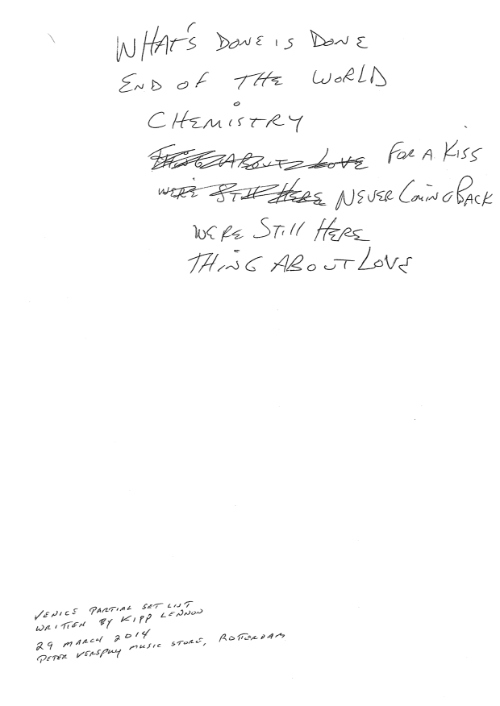 WHAT'S DONE IS DONE
END OF THE WORLD
CHEMISTRY
THING ABOUT LOVE FOR A KISS
WE'RE STILL HERE NEVER COMING BACK
WERE STILL HERE
THING ABOUT LOVE
VENICE PARTIAL SET LIST
WRITTEN BY KIPP LENNON
29 MARCH 2014
PETER VERSPUY MUSIC STORE, ROTTERDAM